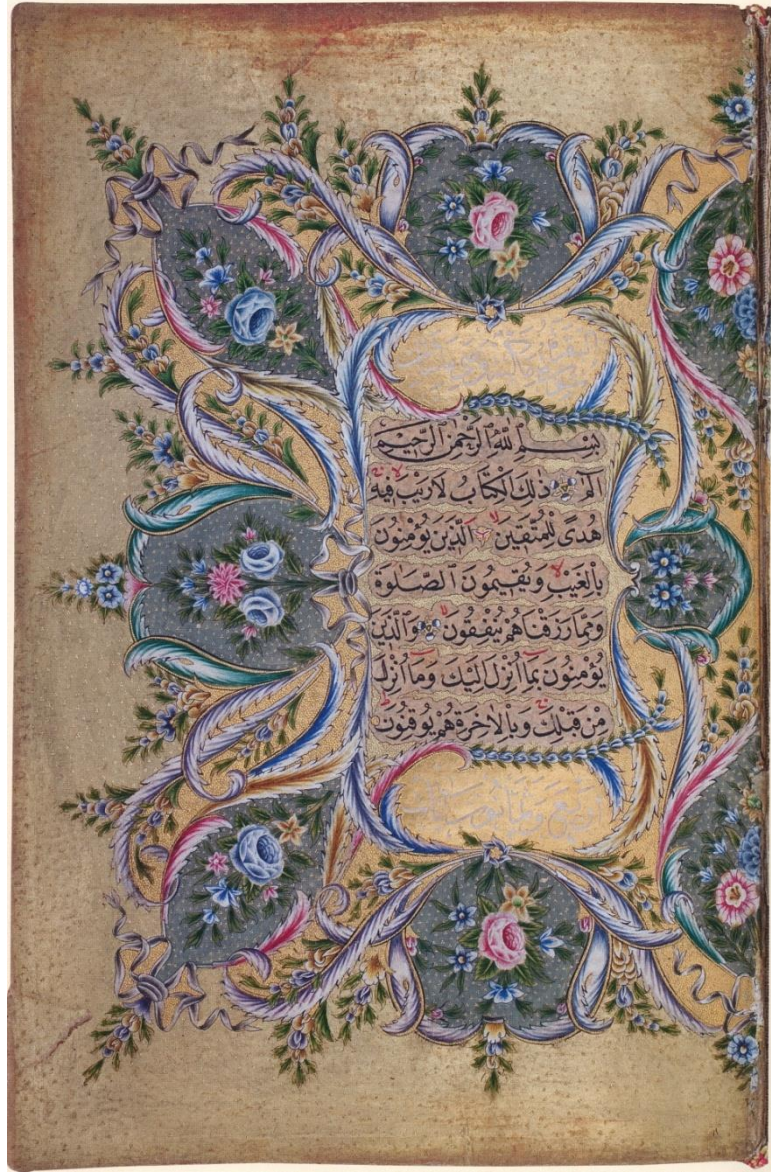 بِسْمِ اللّٰهِ الرَّحْمٰنِ الرَّحِيْمِ
الٓمٓ ذٰلِكَ الْكِتَابُ لَا رَيْبَ فِيهِ
هُدًى لِلْمُتَّقِينَ اَلَّذِينَ يُؤْمِنُونَ
بِالْغَيْبِ وَيُقِيمُونَ الصَّلٰوةَ
وَمِمَّا رَزَقْنَاهُمْ يُنْفِقُونَ وَالَّذِينَ
يُؤْمِنُونَ بِمَا اُنْزِلَ اِلَيْكَ وَمَا اُنْزِلَ
مِنْ قَبْلِكَ وَبِالْاٰخِرَةِ هُمْ يُوقِنُونَ